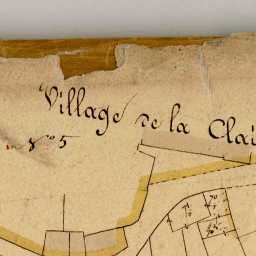 Village de la Clai
N° 5